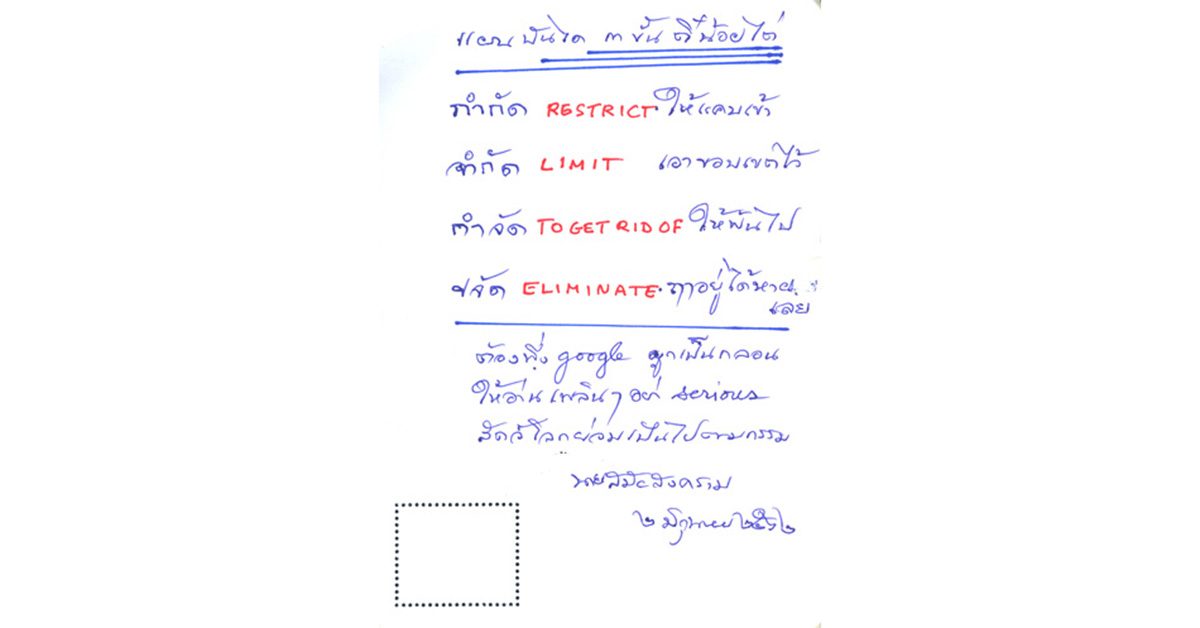 แผนบันได ๓ ขั้น ตี๋น้อยได่
กำกัด RESTRICT ให้แคบเข้า
จำกัด LIMIT เอาขอบเขตไว้
กำจัด TO GET RID OF ให้พ้นไป
ขจัด ELIMINATE อยู่ได้หาย
เลย
ต้องพึ่ง google ผูกเป็นกลอน
ให้อ่านเพลินๆ อย่า serious
สัตว์โลกย่อมเป็นไปตามกรรม
นายสีมะสงคราม
๒ มิถุนายน ๒๕๖๒